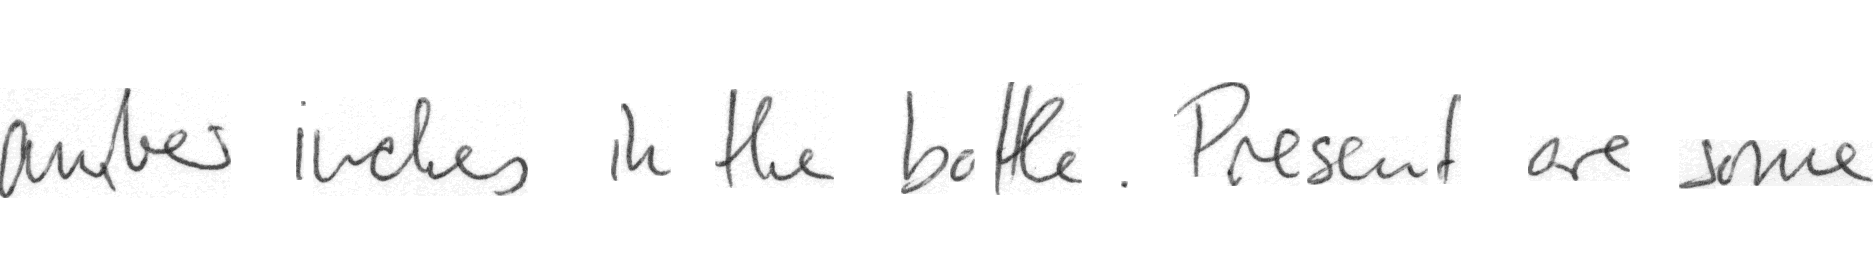 amber inches in the bottle. Present are some